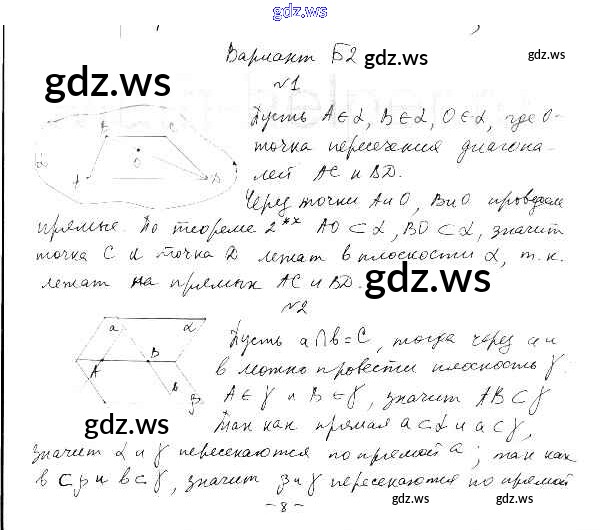 gdz.ws
Вариант Б2
gdz.ws
gdz.ws
№1
Пусть A∈α, B∈α, O∈α, где O-
точка пересечения диагона-
лей AC и BD.
Через точки A и O, B и O проведем
прямые. По теореме 2** AO ⊂ α, BO ⊂ α, значит
точка C и точка D лежат в плоскости α, т.к.
лежат на прямых AC и BD.
gdz.ws
№2
a α
A B
b β
Пусть a∩b=C, тогда через a и
b можно провести плоскость γ.
A∈γ и B∈γ, значит AB⊂γ
gdz.ws
gdz.ws
Так как прямая a⊂α и a⊂γ,
значит α и γ пересекаются по прямой a; так как
b⊂β и b⊂γ, значит β и γ пересекаются по прямой
- 8 -
gdz.ws
gdz.ws